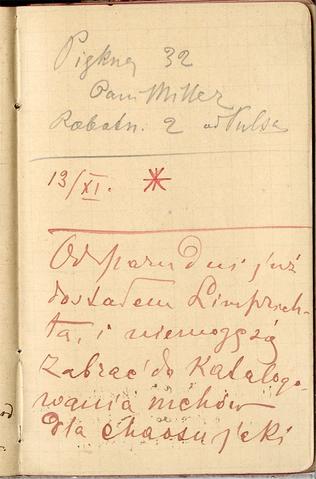 Piękna 32
Pani Miller
Robotn. 2 od Pulsa
13/XI. *
Od paru dni już
dostałem Limprich-
ta, i niemogę się
zabrać do Katalogo-
wania mchów
dla chaosu jaki